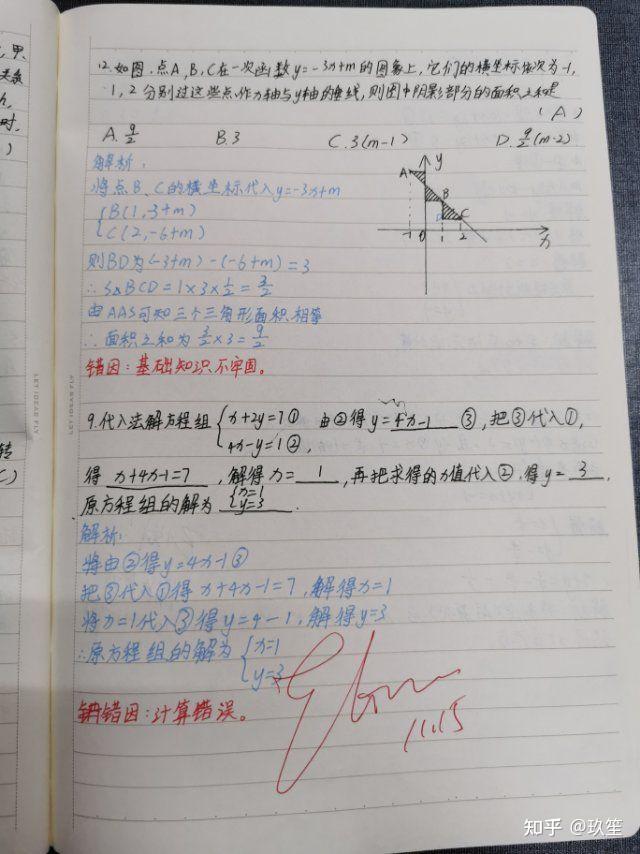 ,甲.
)
12.如图.点A,B,C在一次函数y=-3x+m的图象上,它们的横坐标依次为-1,
1,2 分别过这些点.作x轴与y轴的垂线,则图中阴影部分的面积之和是
(A)
A.9/2 B.3 C.3(m-1) D.9/2(m-2)
解析:
将点B、C的横坐标代入y=-3x+m
{B(1,3+m)
C(2,-6+m)
则BD为(-3+m)-(-6+m)=3
∴S△BCD=1×3×1/2=3/2
由AAS可知三个三角形面积相等
∴面积之和为3/2×3=9/2
错因:基础知识不牢固。
A y B D C -1 0 1 2 x
9.代入法解方程组{x+2y=7① 4x-y=1②, 由②得y=4x-1 ③,把③代入①,
得 x+4x-1=7 ,解得x= 1 ,再把求得的x值代入②,得y= 3 .
原方程组的解为 {x=1 y=3 .
解析:
将由②得y=4x-1③
把③代入①得x+4x-1=7,解得x=1
将x=1代入③得y=4-1,解得y=3
∴原方程组的解为{x=1
y=3
错因:计算错误。
11.15
LET IDEAS FLY
LET IDEAS FLY
转
C)
知乎 @玖笙